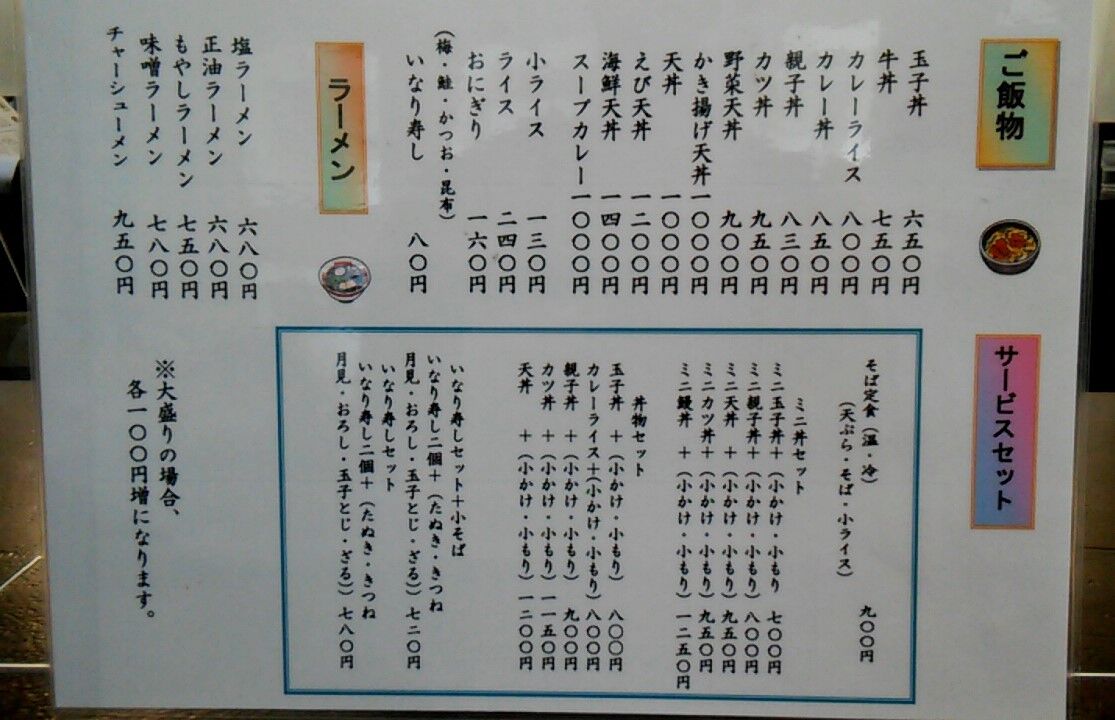 ご飯物
玉子丼 六五〇円
牛丼 七五〇円
カレーライス 八〇〇円
カレー丼 八五〇円
親子丼 八三〇円
カツ丼 九五〇円
野菜天丼 九〇〇円
かき揚げ天丼 一〇〇〇円
天丼 一〇〇〇円
えび天丼 一二〇〇円
海鮮天丼 一四〇〇円
スープカレー 一〇〇〇円
小ライス 一三〇円
ライス 二四〇円
おにぎり 一六〇円
(梅・鮭・かつお・昆布)
いなり寿し 八〇円
ラーメン
塩ラーメン 六八〇円
正油ラーメン 六八〇円
もやしラーメン 七五〇円
味噌ラーメン 七八〇円
チャーシューメン 九五〇円
サービスセット
そば定食(温・冷)
(天ぷら・そば・小ライス) 九〇〇円
ミニ丼セット
ミニ玉子丼+(小かけ・小もり 七〇〇円
ミニ親子丼+(小かけ・小もり) 八〇〇円
ミニ天丼 +(小かけ・小もり) 九五〇円
ミニカツ丼+(小かけ・小もり) 九五〇円
ミニ鰻丼 +(小かけ・小もり) 一二五〇円
丼物セット
玉子丼 +(小かけ・小もり) 八〇〇円
カレーライス+(小かけ・小もり) 八〇〇円
親子丼 +(小かけ・小もり) 九〇〇円
カツ丼 +(小かけ・小もり) 一一五〇円
天丼 +(小かけ・小もり) 一二〇〇円
いなり寿しセット+小そば
いなり寿し二個+(たぬき・きつね
月見・おろし・玉子とじ・ざる)) 七二〇円
いなり寿しセット
いなり寿し二個+(たぬき・きつね
月見・おろし・玉子とじ・ざる)) 七八〇円
※大盛りの場合、
各一〇〇円増になります。